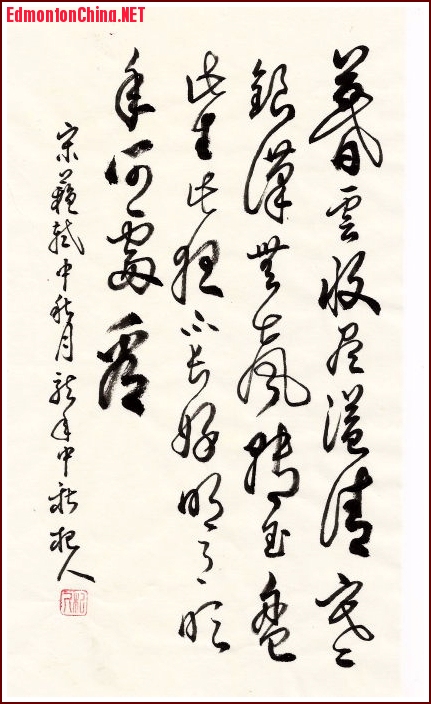 EdmontonChina.NET
暮雲收尽溢清寒
銀漢無聲轉玉盤
此生此夜不長好明月明
年何處看
宋蘇軾中秋月龍年中秋人